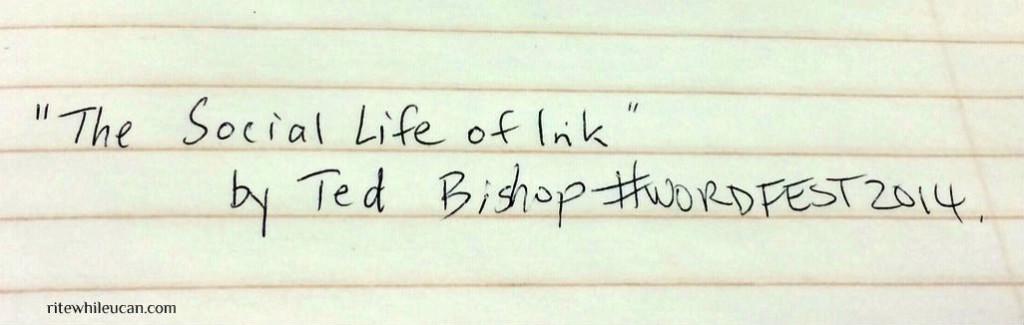 "The Social Life of Ink"
by Ted Bishop #WORDFEST2014.
ritewhileucan.com